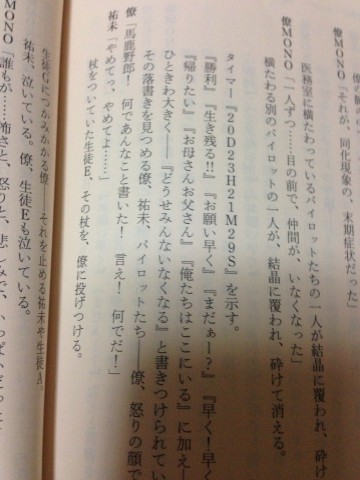 僚MONO「それが、同化現象の、末期症状だった」
医務室に横たわっているパイロットたちの一人が結晶に覆われ、砕け
僚MONO「一人ずつ……目の前で、仲間が、いなくなった」
横たわる別のパイロットの一人が、結晶に覆われ、砕けて消える。
タイマー『20D23H21M29S』を示す。
『勝利』『生き残る!!』『お願い早く』『まだぁー？』『早く！早く
『帰りたい』『お母さんお父さん』『俺たちはここにいる』に加え―
ひときわ大きく―『どうせみんないなくなる』と書きつけられてい
その落書きを見つめる僚、祐未、パイロットたち――僚、怒りの顔で
僚「馬鹿野郎！　何であんなこと書いた！　言え！　何でだ！」
祐未「やめてっ、やめてよ……」
杖をついていた生徒E、その杖を、僚に投げつける。
生徒Gにつかみかかる僚――それを止める祐未や生徒A。
祐未、泣いている。僚、生徒Eも泣いている。
MONO「誰もが……怖さと、怒りと、悲しみで、いっぱいだった